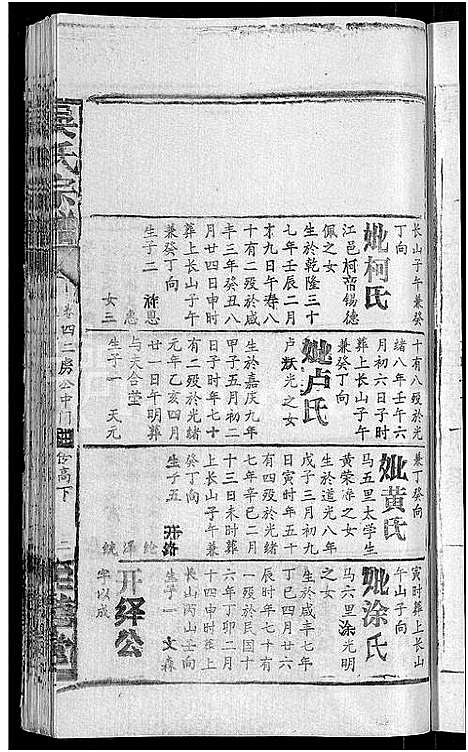 吴氏宗谱
卷四二房公中门
傍高下
二
长山子午兼癸
丁向
妣柯氏
江邑柯帝锡德
佩之女
生於乾隆三十
七年壬辰二月
十九日午寿八
十有二殁於咸
丰三年癸丑八
月廿四日申时
葬上长山子午
兼癸丁向
生子二
祚恩
惠
女三
十有八殁於光
绪八年壬午六
月初六日子时
葬上长山子午
兼癸丁向
妣卢氏
卢猷光之女
生於嘉庆九年
甲子五月初二
日子时年七十
有二殁於光绪
元年乙亥四月
廿一日午明葬
与夫合莹
生子一
天元
兼丁癸向
妣黄氏
马五里太学生
黄荣澤之女
生於道光八年
戊子三月初九
日寅时年五十
有四殁於光绪
七年辛巳二月
十三日未时葬
上长山子午兼
癸丁向
生子五
开绪
绘
泽
统
寅时葬上长山
午山子向
妣涂氏
马六里涂光明
之女
生於咸丰七年
丁巳四月廿六
辰时年七十有
一殁於民国十
六年丁卯二月
十四申时葬上
长山丙山壬向
生子一
文森
开绎公
字以成